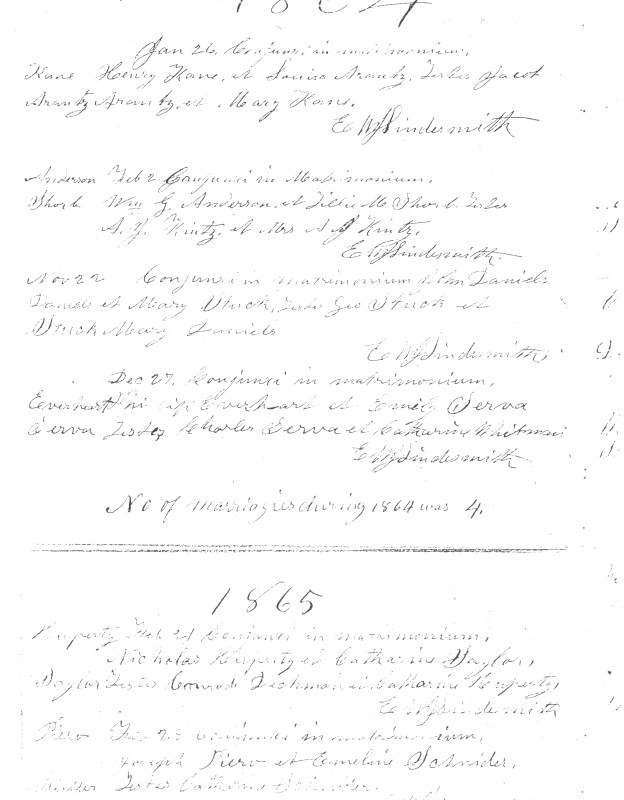 1864
Jan 26. Conjunxi in matrimonium,
Kane Henry Kane, et Louisa Arantz, Testes Jacob
Arantz Arantz, et Mary Kane.
E W J Lindesmith
Anderson Feb 2 Conjunxi in Matrimonium,
Shorb Wm G. Anderson, et Tillie M Shorb. Testes
A. J. Kintz, et Mrs A J Kintz,
E W J Lindesmith.
Nov 22 Conjunxi in matrimonium John Daniels
Daniels et Mary Stuck, Testes Geo Stuck et
Stuck Mary Daniels
E W J Lindesmith,
Dec 27. Conjunxi in matrimonium,
Everhart Everhart et Emily Serva
Serva Testes Charles Serva et Catharine Whitman
E W J Lindesmith
No of marriages during 1864 was 4.
1865
Rupertz Feb 21 Conjunxi in matrimonium,
Nicholas Rupertz et Catharine Taylor,
Taylor Testes Conrad et Catharine Rupertz,
E W J Lindesmith
Piero Feb 28 Conjunxi in matrimonium,
Joseph Piero et Emeline Schnider,
Testes Catharine Schnider.